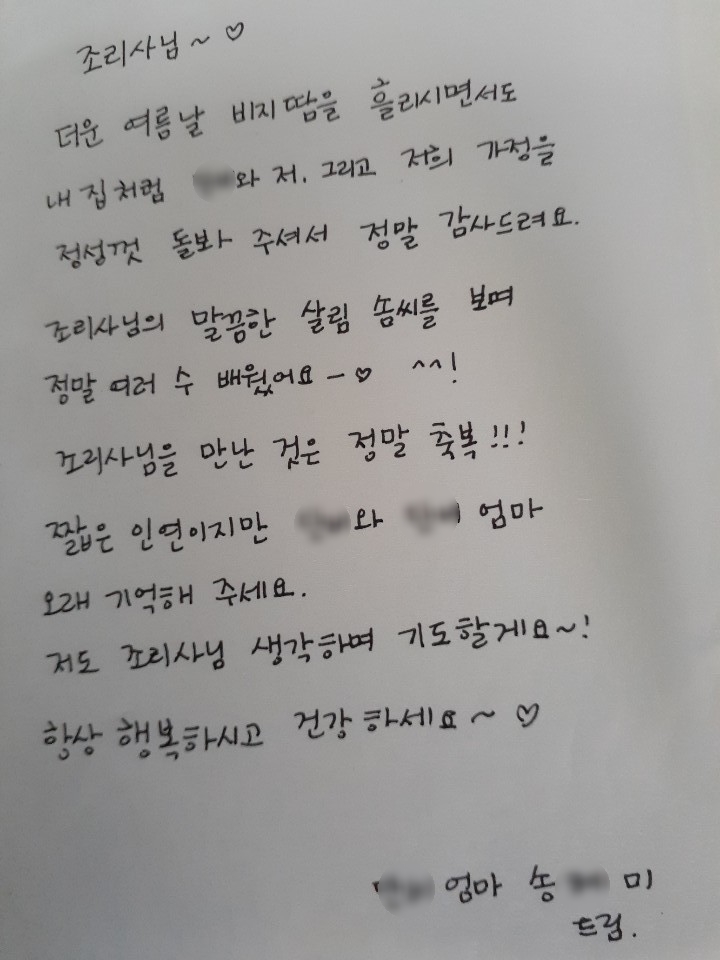 조리사님~♡
더운 여름날 비지땀을 흘리시면서도
내 집처럼 와 저. 그리고 저희 가정을
정성껏 돌봐 주셔서 정말 감사드려요.
조리사님의 말끔한 살림 솜씨를 보며
정말 여러 수 배웠어요-♡ ^^!
조리사님을 만난 것은 정말 축복!!!
짧은 인연이지만 와 엄마
오래 기억해 주세요.
저도 조리사님 생각하며 기도할게요~!
항상 행복하시고 건강하세요~♡
엄마 송 미
드림.